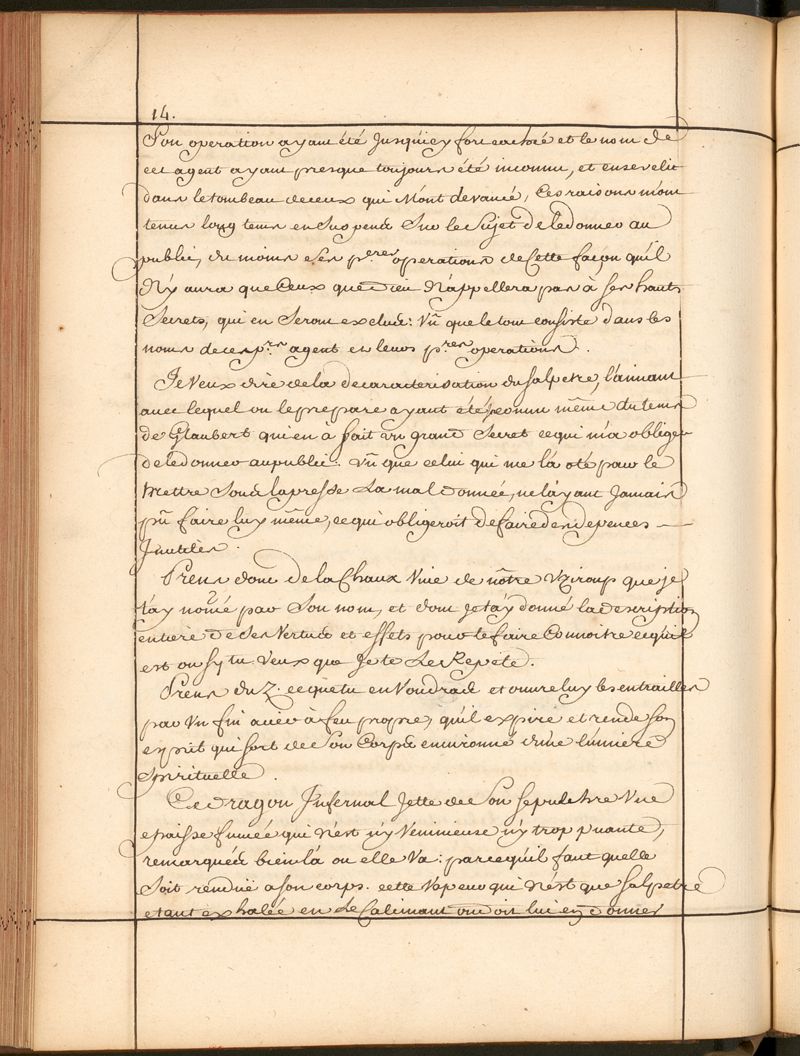 14.
Son operation ayant été Jusqu'icy fort cachée et le nom de
cet agent ayant presque toujours été inconnu, et enseveli
dans le tombeau deceux qui M'ont devancé, Ces raisons m'ont
tenus long tems en Suspend Sur le Sujet de ledonner au
public, du moins Ses p.res operations de Cette façon qu'il
N'y aura que Ceux que Dieu N'appellera pas à Ses hauts
Secrets, qui en Seront exclud: Vû que le tout consiste dans les
noms deces p.rs agent et leurs p.res operations.
Je Veux dire de la decaracterisation du Salpetre, l'aimant
avec lequel on le prepare ayant été connu même du tems
de Glaubert qui en a fait un grand Secret ce qui m'a obligé
de ledonner au public. Vû que celui qui me l'a oté pour le
Mettre Sous la presse La mal donnée, ne l'ayant Jamais
pû faire luy même, ce qui obligeroit de faire des depences
Inutiles.
Prens donc de la Chaux Vive de nôtre que je
t'ay nomé par Son nom, et dont je t'ay donné la description
entiere de Ses Vertus et effets pour te faire Connoitre ce quil
est ou Sy tu Veux que Je te Le Repete.
Prens du Z. ce que tu en Voudras et ouvre luy les entrailles
par Un fin acier à feu propre, qu'il expire et rende Son
esprit qui Sort de Son Corps environné d'une lumiere
Spirituelle.
Ce dragon Infernal Jette de Son Sepulchre Une
epaisse fumée qui n'est n'y Venimeuse n'y trop puante,
remarqués bien là ou elle Va: parcequ'il faut quelle
Soit renduë a son corps. cette Vapeur qui N'est que Salpetre
etant exhalée en Le Calcinant on doit lui en donner